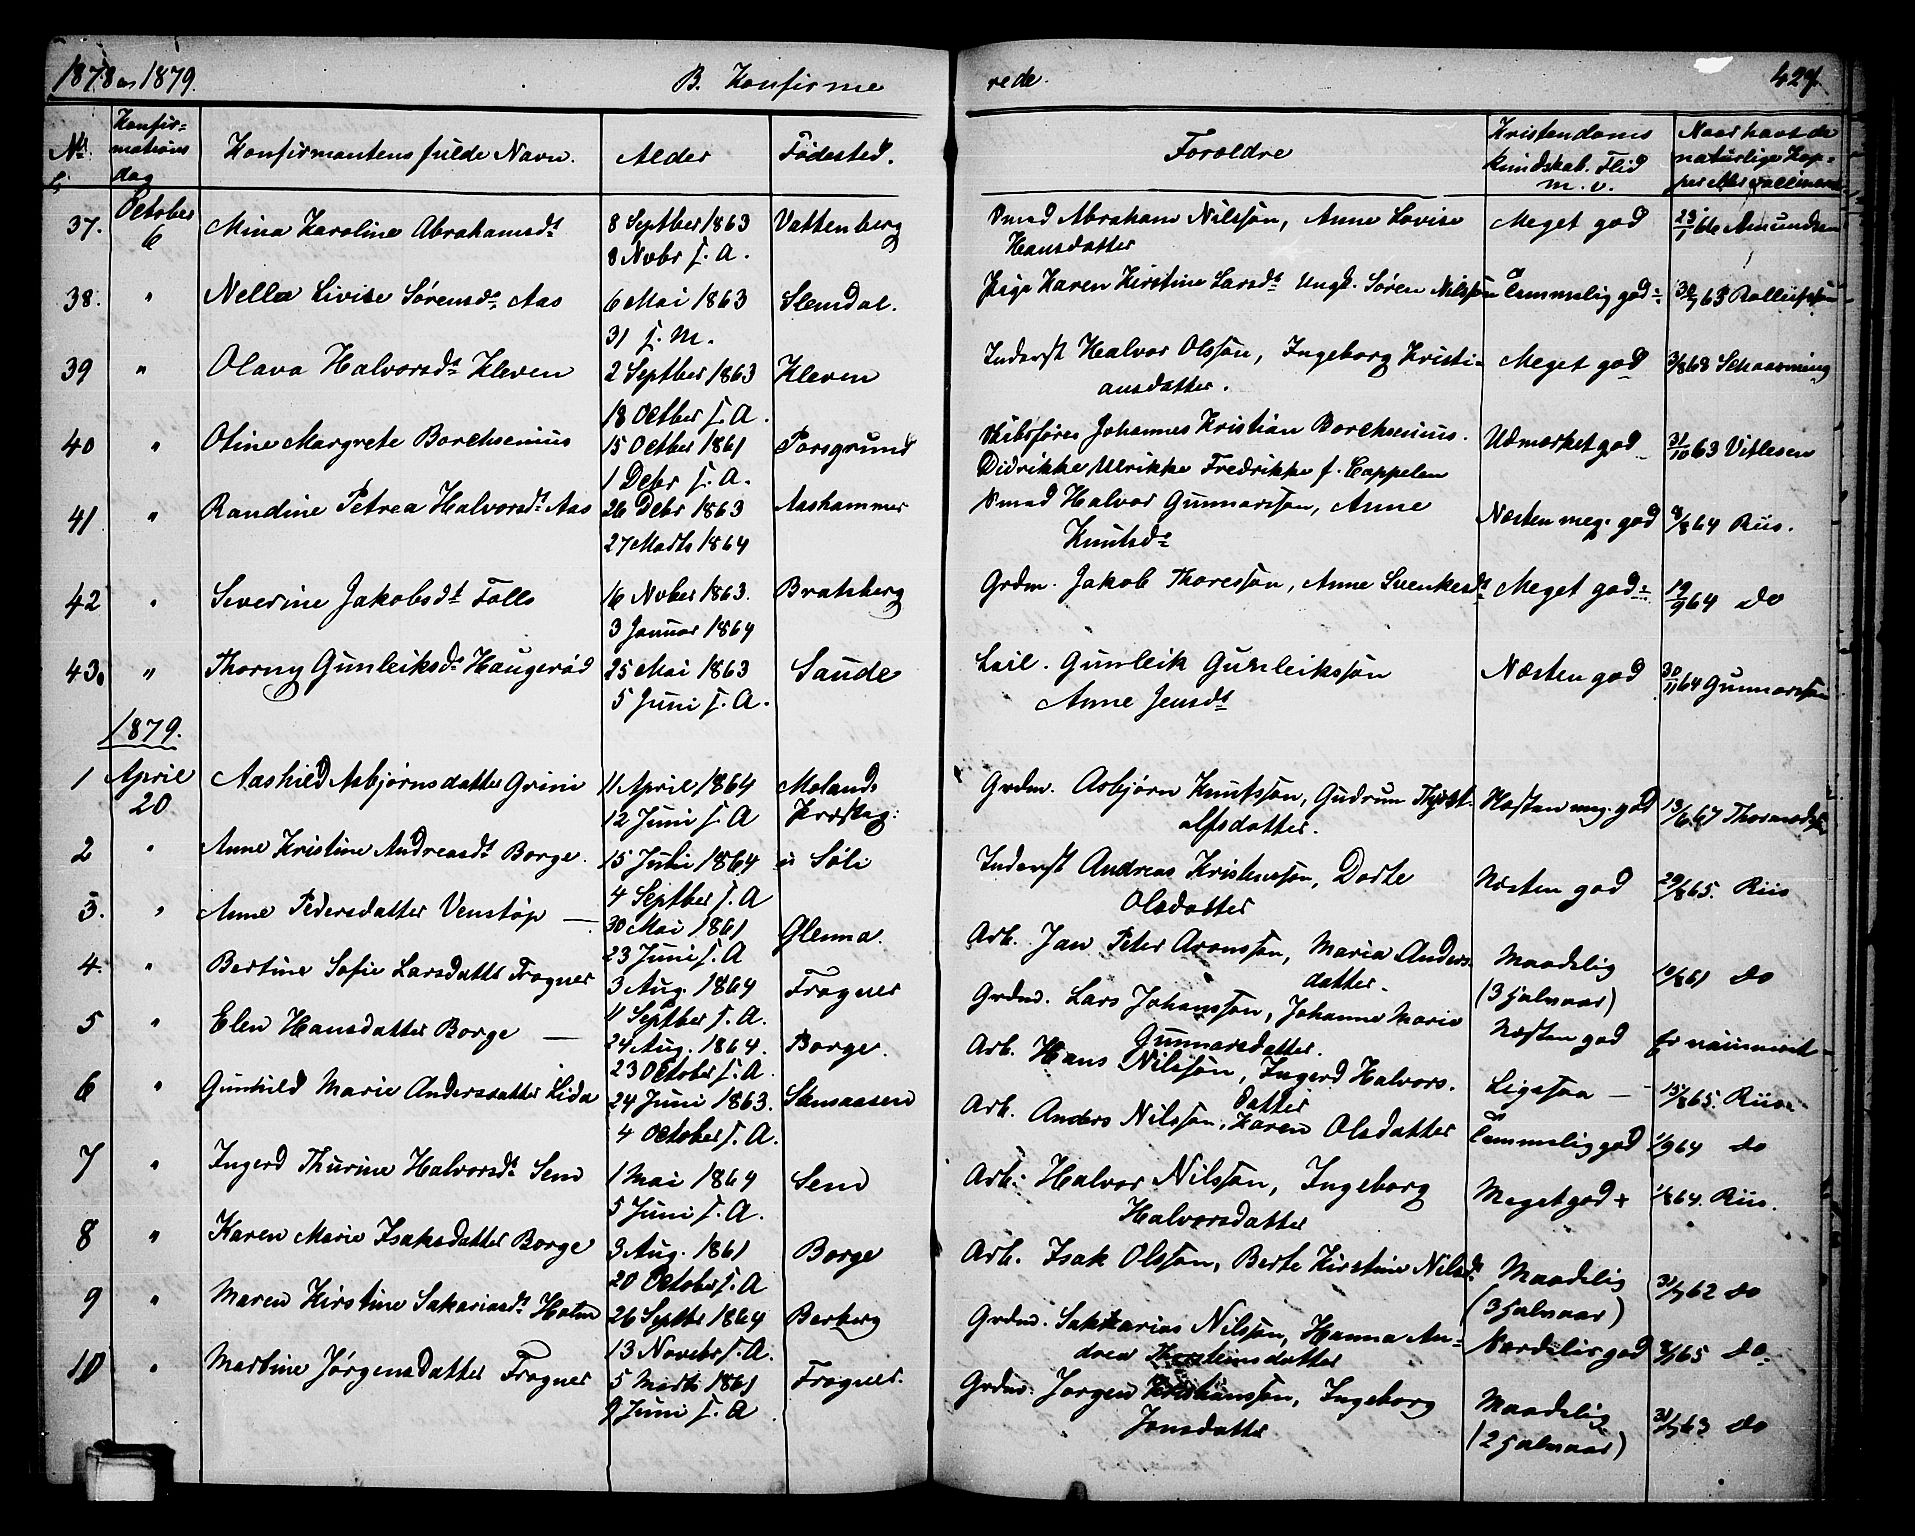 1878 og 1879.
B. Konfirme
rede.
427.
No
Konfir=
mations
dag
Konfirmantens fulde Navn.
Alder
Fødested.
Forældre
Kristendoms
kundskab. Flid
m. v.
Naar havt de
naturlige Kop=
per eller vaccineret
37. October 6 Mina Karoline Abrahamsdt
8 Septber 1863
8 Nvbr s. A.
Vattenberg
Smed Abraham Nilssøn, Anne Lovise
Hansdatter
Meget god
23/1 66 Amundsen
38. " Nella Livise Sørensdt Aas
6 Mai 1863
31 s. M.
Slemdal.
Pige Karen Kirstine Larsdt Ungk. Søren Nilssøn
Temmelig god
63 Rolleifssøn
39 " Olava Halvorsdt Kleven
2 Septber 1863
18 Octber s. A.
Kleven
Inderst Halvor Olssøn, Ingeborg Kristi-
ansdatter.
Meget god
3/8 68 Schaarning
40 " Otine Margrete Borchsenius
15 Octber 1861
1 Debr s. A.
Porsgrund
Skibsfører Johannes Kristian Borchsenius.
Didrikke Ulrikke Fredrikke f. Cappelen
Udmærket god
31/10 63 Vitlesen
41 " Randine Petrea Halvorsdt Aas
26 Debr 1863
27 Marts 1864
Aashammer
Smed Halvor Gunnarssøn, Anne
Knutsdt
Næsten meg. god
8/8 64 Riis.
42 " Severine Jakobsdt Follo
16 Nvber 1863.
3 Januar 1864
Bratsberg
Grdm. Jakob Thoressøn, Anne Svenkesdt
Meget god
19/9 64 do
43. " Thorny Gunleiksdt Haugerød
25 Mai 1863
5 Juni s. A.
Saude
Leil. Gunleik Gunleikssøn
Anne Jensdt
Næsten god
30/11 64 Gunnarssøn
1879.
1 April 20 Aashild Asbjørnsdatter Grini
11 April 1864
12 Juni s. A
Molands
Præsteg:
Grdm. Asbjørn Knutssøn, Gudrun
olfsdatter.
Næsten meg. god
13/6 67
2 " Anne Kristine Andreasdt Borge.
15 Juli 1864
4 Septber s. A
Søli
Inderst Andreas Kristenssøn, Dorte
Olsdatter
Næsten god
29/8 65. Riis
3. " Anne Pedersdatter Venstøp —
30 Mai 1861
23 Juni s. A
Glenna.
Arb. Jan Peter Aronssøn, Maria Anders
datter.
Maadelig
(3 halvaar)
18/8 61 do
4. " Bertine Sofie Larsdatter Frogner
3 Aug. 1864
4 Septber s. A.
Frogner
Grdm. Lars Johanssøn, Johanne Marie
Gunnarsdatter.
Næsten god
5 " Elen Hansdatter Borge —
24 Aug. 1864.
23 October s. A
Borge.
Arb. Hans Nilssøn, Ingerd Halvors.
datter
Ligesaa —
15/8 65. Riis
6 " Gunhild Marie Andersdatter Lida
24 Juni 1863.
4 October s. A.
Stensaasen
Arb. Anders Nilssøn, Karen Olsdatter
Temmelig god
1/9 64 do
7 " Ingerd Thurine Halvorsdt Sem
1 Mai 1864
5 Juni s. A.
Sem
Arb. Halvor Nilssøn, Ingeborg
Halvorsdatter
Meget god +
1/8 64. Riis.
8 " Karen Marie Isaksdatter Borge
3 Aug. 1861
20 October s. A
Borge
Arb. Isak Olssøn, Berte Kirstine Nilsdt
Maadelig
(3 halvaar)
31/7 62 do
9 " Maren Kirstine Sakariasdt Holm
26 Septbr 1864
13 Novebr s. A.
Berberg
Grdm. Sakkarias Nilssøn, Hanna An-
drea Thorsteinsdatter
god
8/7 65 do
10 " Martine Jørgensdatter Frogner
5 Marts 1861
9 Juni s. A
Frogner.
Grdm. Jørgen Kristianssøn, Ingeborg
Jonsdatter
Maadelig
(2 halvaar)
31/7 63 do